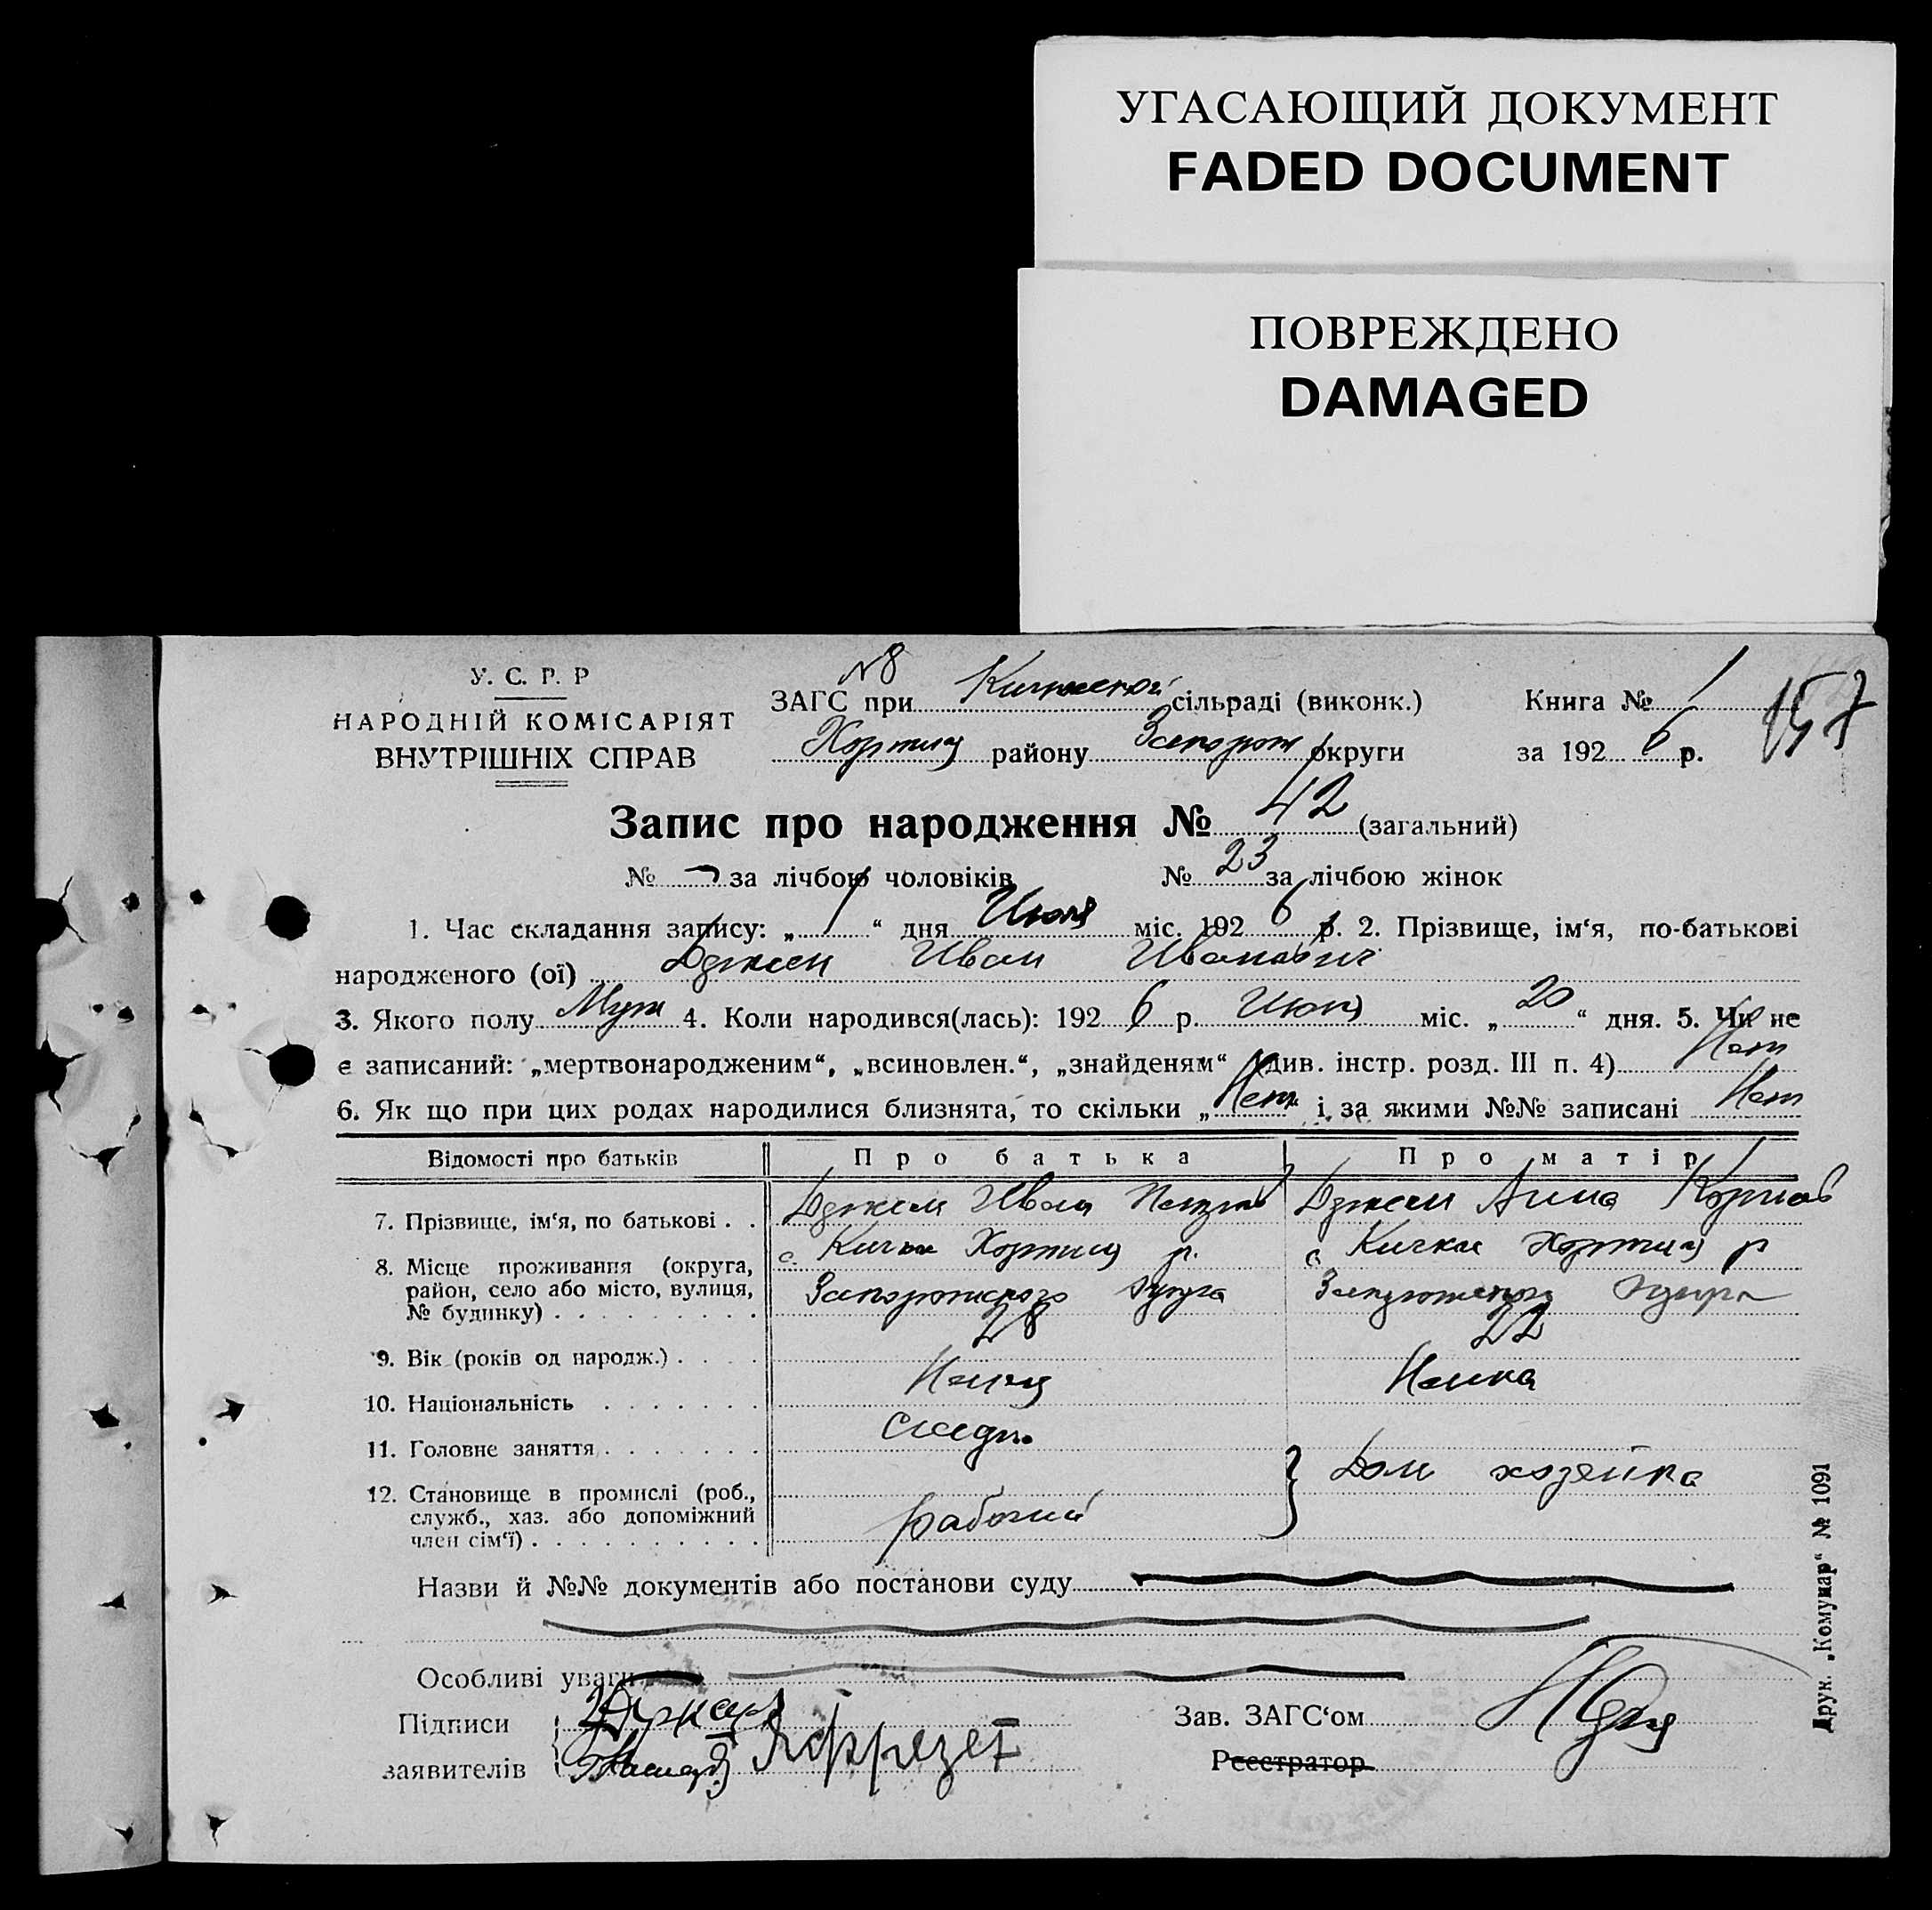 УГАСАЮЩИЙ ДОКУМЕНТ
FADED DOCUMENT
ПОВРЕЖДЕНО
DAMAGED
У. С. Р. Р
НАРОДНІЙ КОМІСАРІЯТ
ВНУТРІШНІХ СПРАВ
N8
ЗАГС при Кичкаской сільраді (виконк.)
Хортиц району Запорож округи
Книга № 1
за 192 6 р.
157
Запис про народження № 42 (загальний)
№ за лічбою чоловіків № 23 за лічбою жінок
1. Час складання запису: „ 1 “ дня Июля міс. 192 6 р. 2. Прізвище, ім‘я, по-батькові
народженого (ої) Иван Иванович
3. Якого полу Муж 4. Коли народився(лась): 192 6 р. міс. „ 20 “ дня. 5. Чи не
є записаний: „мертвонародженим“, „всиновлен.“, „знайденям“ (див. інстр. розд. III п. 4) Нет
6. Як що при цих родах народилися близнята, то скільки „ Нет і за якими №№ записані Нет
Відомості про батьків Про батька Про матір
7. Прізвище, ім‘я, по батькові . . Иван Анна Корнов
8. Місце проживання (округа, с. Кичкас Хортиц р. с Кичкас Хортиц р
район, село або місто, вулиця, Запорожского округа Запорожского округа
№ будинку) . . . . . . . . .
9. Вік (років од народж.) . . . . 28 22
10. Національність . . . . . . . Немец Немка
11. Головне заняття . . . . . . .
12. Становище в промислі (роб., Дом хозяйка
служб., хаз. або допоміжний рабочий
член сім‘ї) . . . . . . . . . .
Назви й №№ документів або постанови суду
Особливі уваги
Підписи
заявителів
Зав. ЗАГС‘ом
Реєстратор
Друк. „Комунар“ № 1091